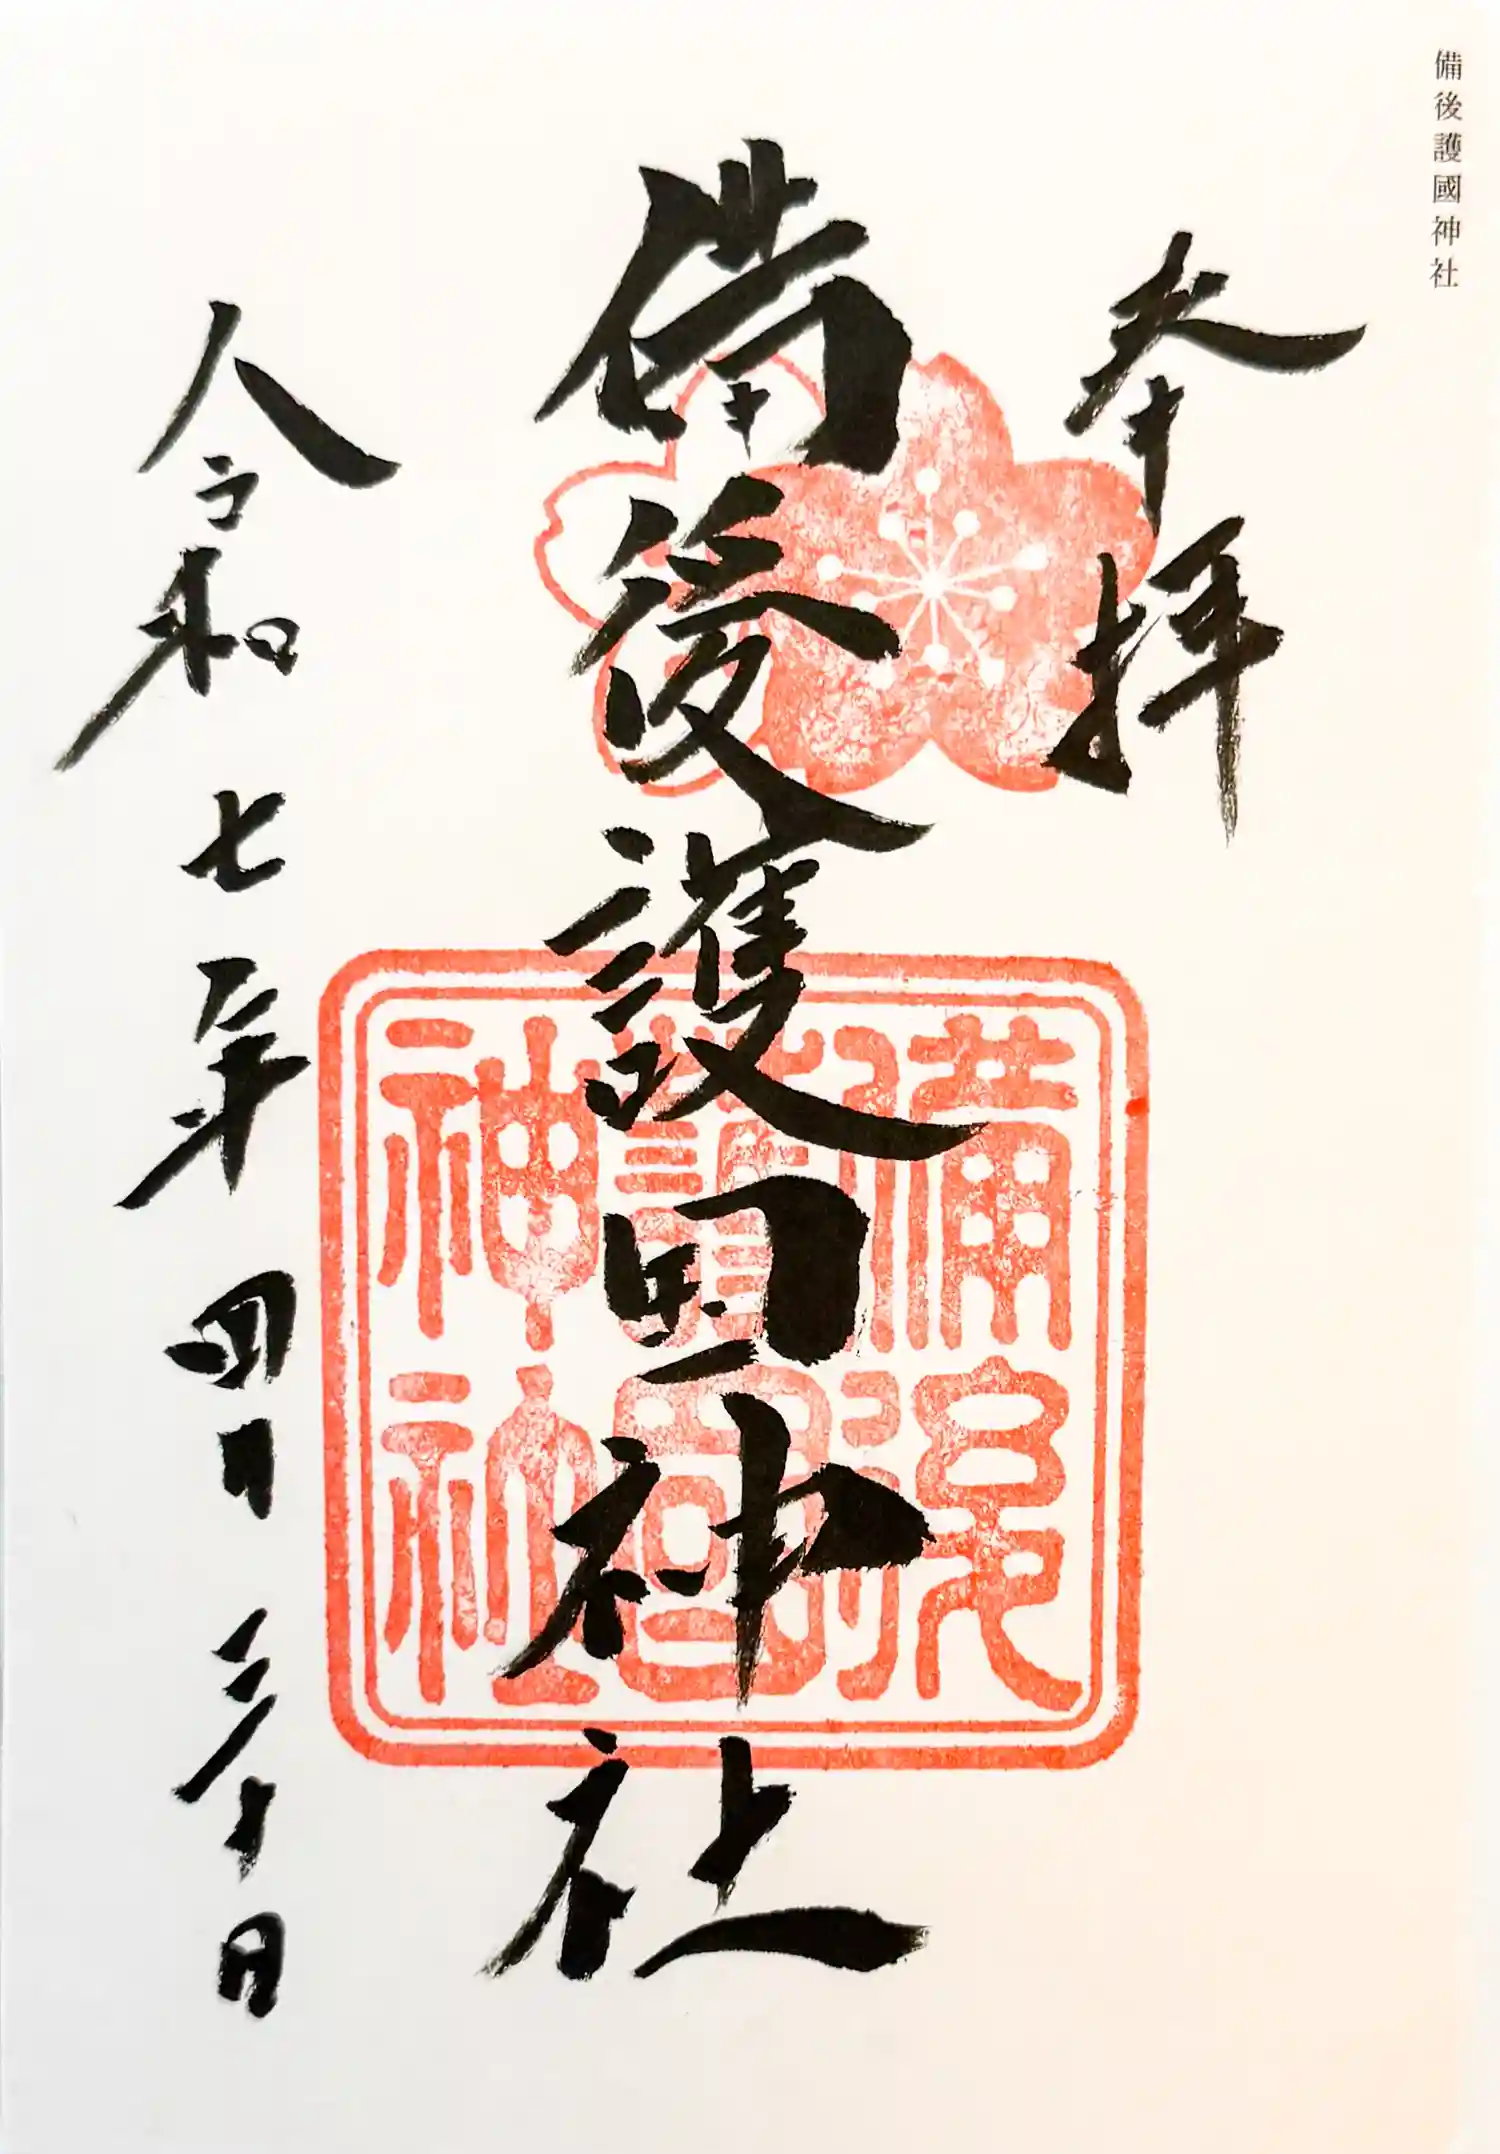 備後護國神社
奉拝
備後護国神社
令和七年四月三十日
備後
護國
神社